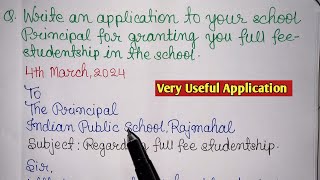 Q. Write an application to your school
Principal for granting you full fee-
studentship in the school.
4th March, 2024
Very Useful Application
To
The Principal
Indian Public School, Rajmahal
Subject: Regarding full fee studentship.
Sir,